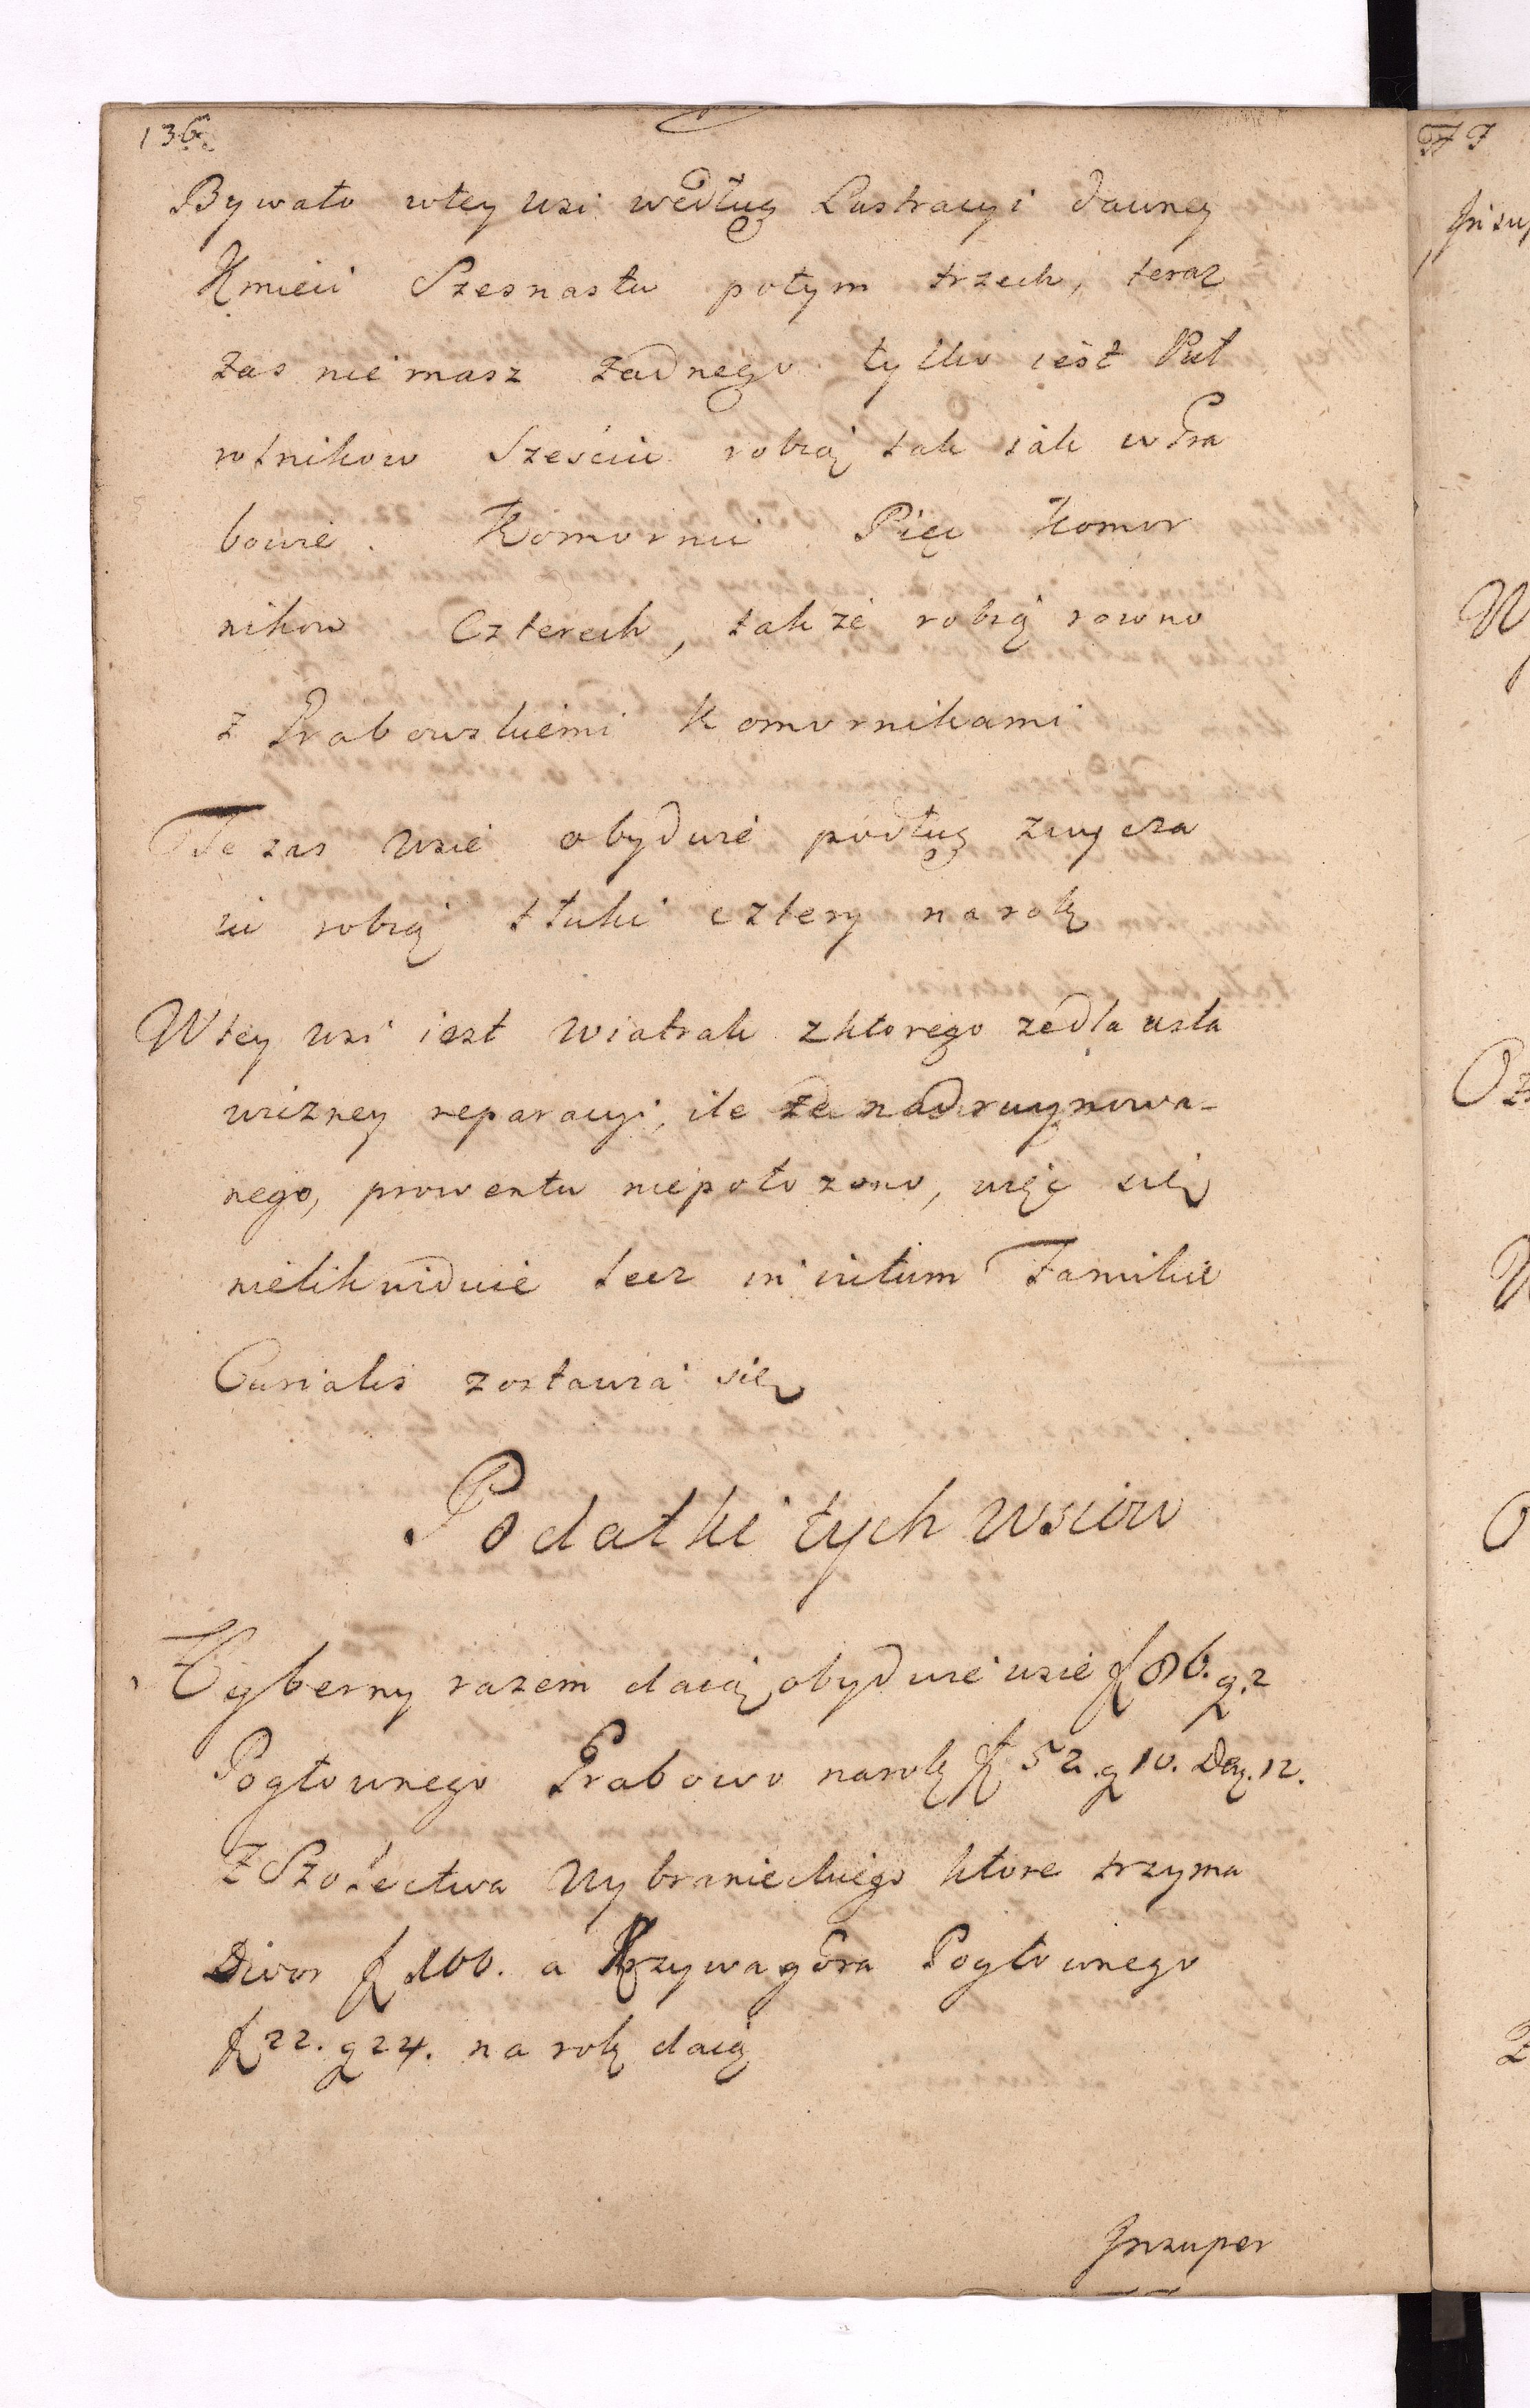 136.
Bywało wtey wsi według Lustracyi dawney
Kmieci Szesnastu potym trzech, teraz
zas niemasz żadnego tylko iest Puł
rolnikow Sześciu robią tak iak w Gra
bowie. Komornic Pięc Komor
nikow Czterech, takze robią rowno
z Grabowskiemi Komornikami
Te zas wsie obydwie podług zwycza
iu robią tłuki cztery narok
Wtey wsi iest Wiatrak zktorego zedla usta
wizney reparacyi, ile ze nadruynowa-
nego, prowentu niepołozono, więc się
nielikwiduie lecz in victum Familiæ
Curialis zostawia się
Podatki tych wsiow
Hyberny razem daią obydwie wsie f 86. g. 2
Pogłownego Grabowo narok f 52. g 10. Den. 12.
Z Szołectwa Wybranieckiego ktore trzyma
Dwor f 100. a Krzywagora Pogłownego
f 22. g 24. na rok daią
Insuper